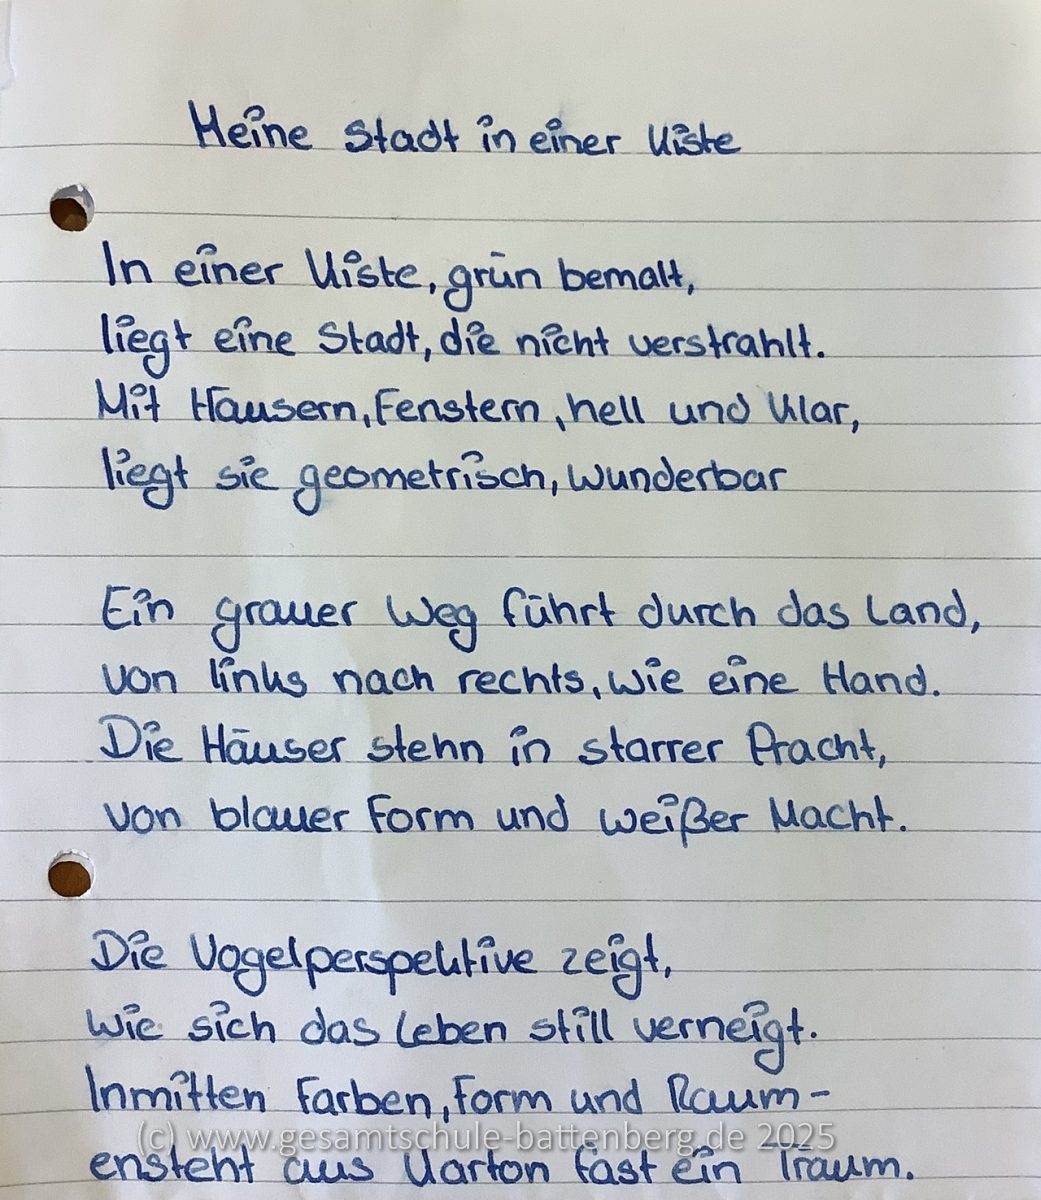 Meine Stadt in einer Kiste
In einer Kiste, grün bemalt,
liegt eine Stadt, die nicht verstrahlt.
Mit Häusern, Fenstern, hell und klar,
liegt sie geometrisch, wunderbar
Ein grauer Weg führt durch das Land,
von links nach rechts, wie eine Hand.
Die Häuser stehn in starrer Pracht,
von blauer Form und weißer Macht.
Die Vogelperspektive zeigt,
wie sich das Leben still verneigt.
Inmitten Farben, Form und Raum-
(c) www.gesamtschule-battenberg.de 2025
ensteht aus Karton fast ein Traum.